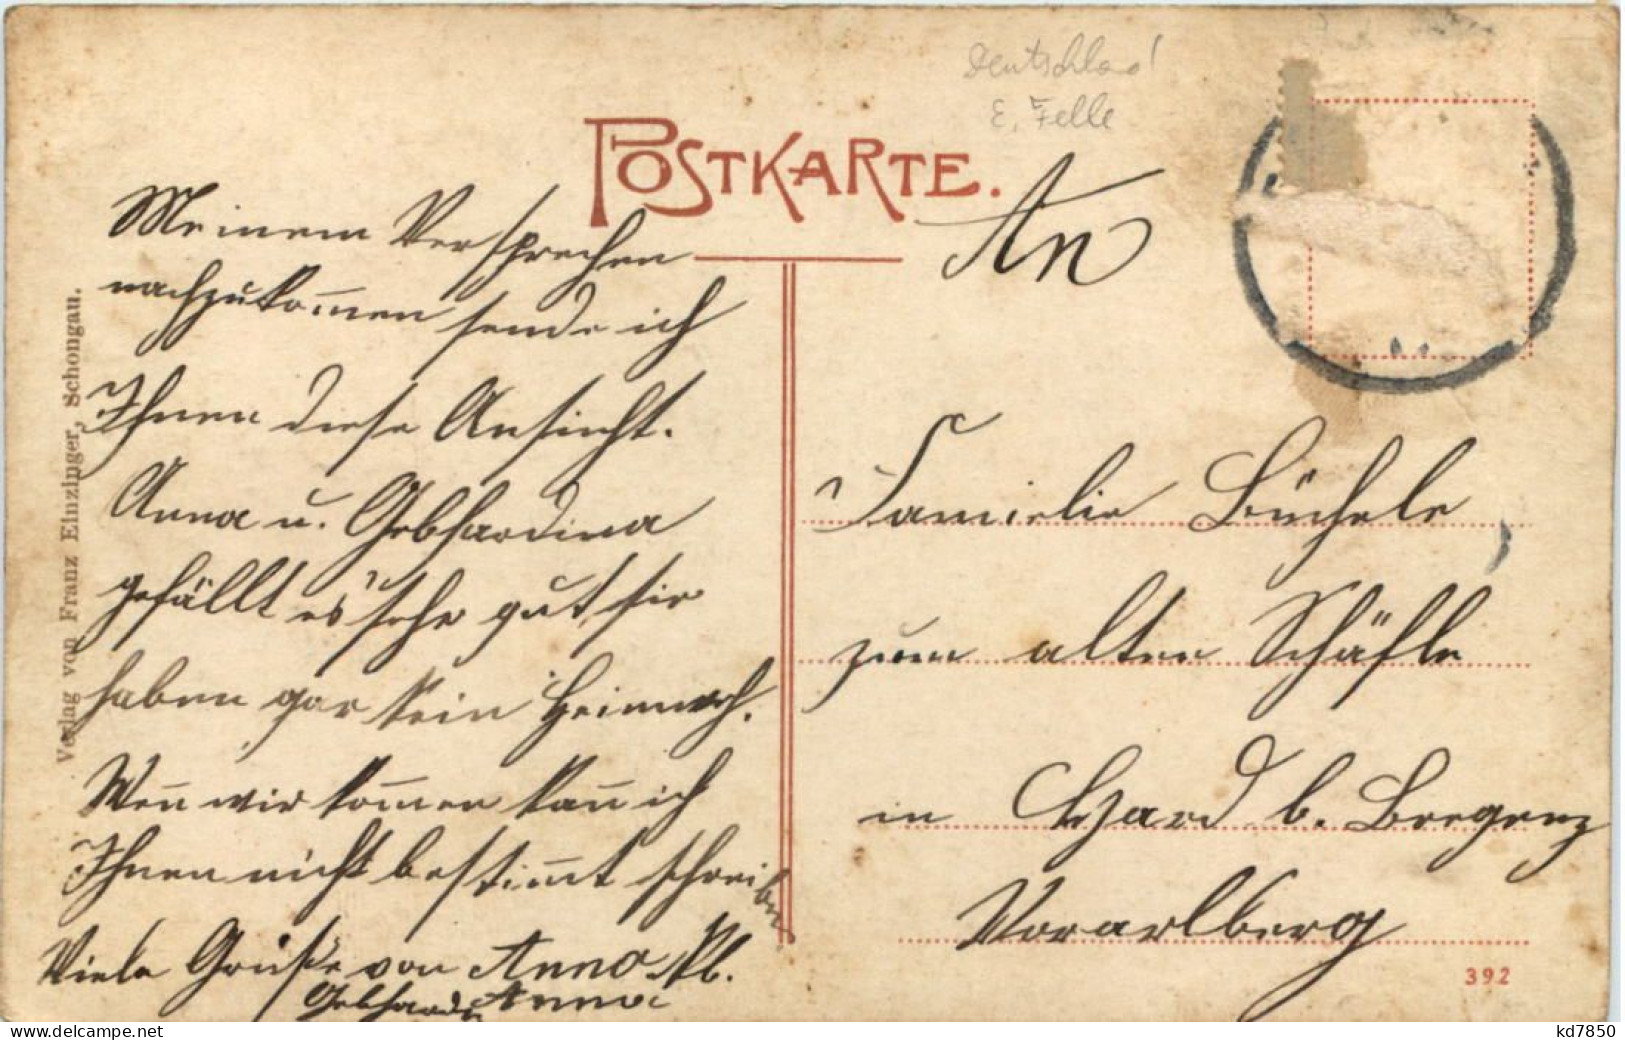 Deutschland
E. Felle
POSTKARTE.
Meinem Versprechen
nachzukom̅en sende ich
Ihnen diese Ansicht.
Anna u. Gebhardina
gefällt es sehr gut, sie
haben gar kein Heimweh.
Wen̅ wir kom̅en kan̅ ich
Ihnen nicht bestim̅t schreiben
Viele Grüße von Anna
Gebhardi Anna
Verlag von Franz Einzinger, Schongau.
An
Familie Büchele
zum alten Schäfle
in Hard b. Bregenz
Vorarlberg
392
kd7850